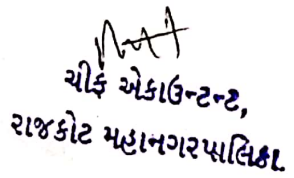 ચીફ એકાઉન્ટન્ટ,
રાજકોટ મહાનગરપાલિકા.